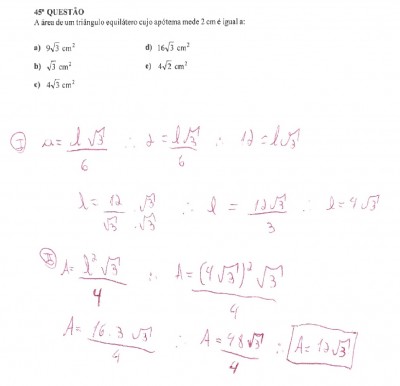 45ª QUESTÃO
A área de um triângulo equilátero cujo apótema mede 2 cm é igual a:
a) 9√3 cm² d) 16√3 cm²
b) √3 cm² e) 4√2 cm²
c) 4√3 cm²
I a = l√3/6 ∴ 2 = l√3/6 ∴ 12 = l√3
l = 12/√3 . √3/√3 ∴ l = 12√3/3 ∴ l = 4√3
II A = l²√3/4 ∴ A = (4√3)²√3/4
A = 16.3√3/4 ∴ A = 48√3/4 ∴ A = 12√3